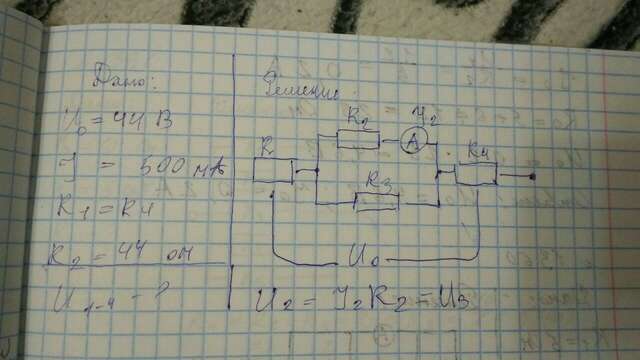 Дано:
U₀ = 44 В
J = 500 мА
R₁ = R₄
R₂ = 44 ом
U₁₋₄ - ?
Решение:
R₂ J₂
R A R₄
R₃
U₀
U₂ = J₂R₂ = U₃